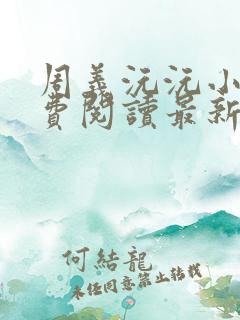 周義沅沅小
費閱讀最新
何結龍
未经同意禁止转载